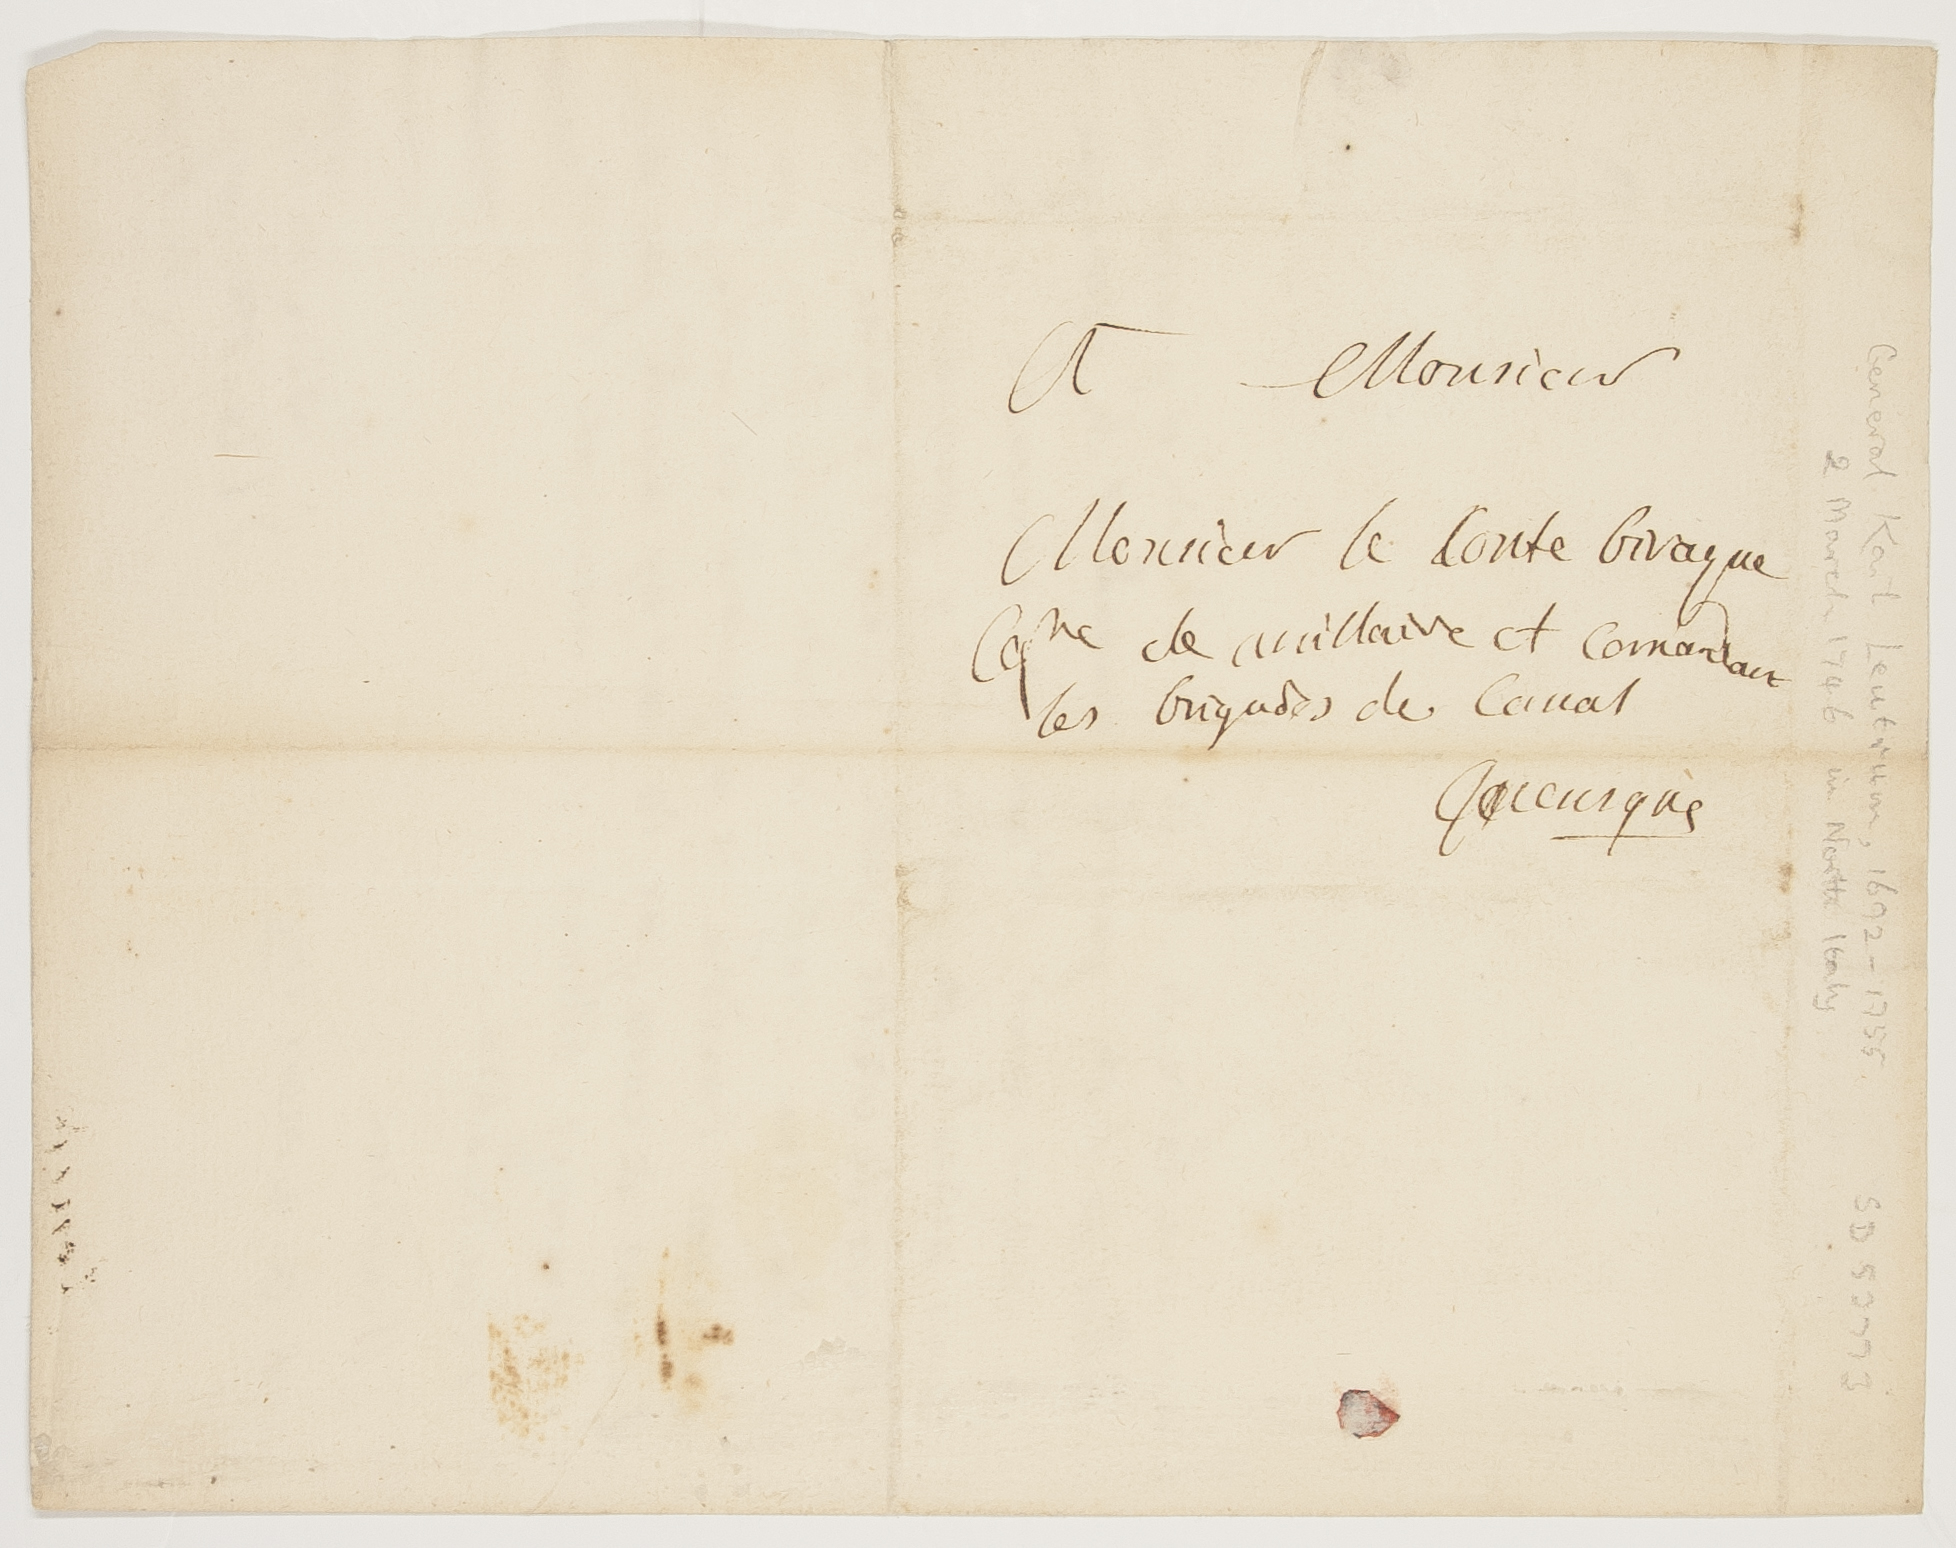 A Monsieur
Monsieur le Conte birague
Capne de millaire et comandant
les brigades de Canal
General Karl Leutrum, 1692-1755.
2 March 1746 in North Italy